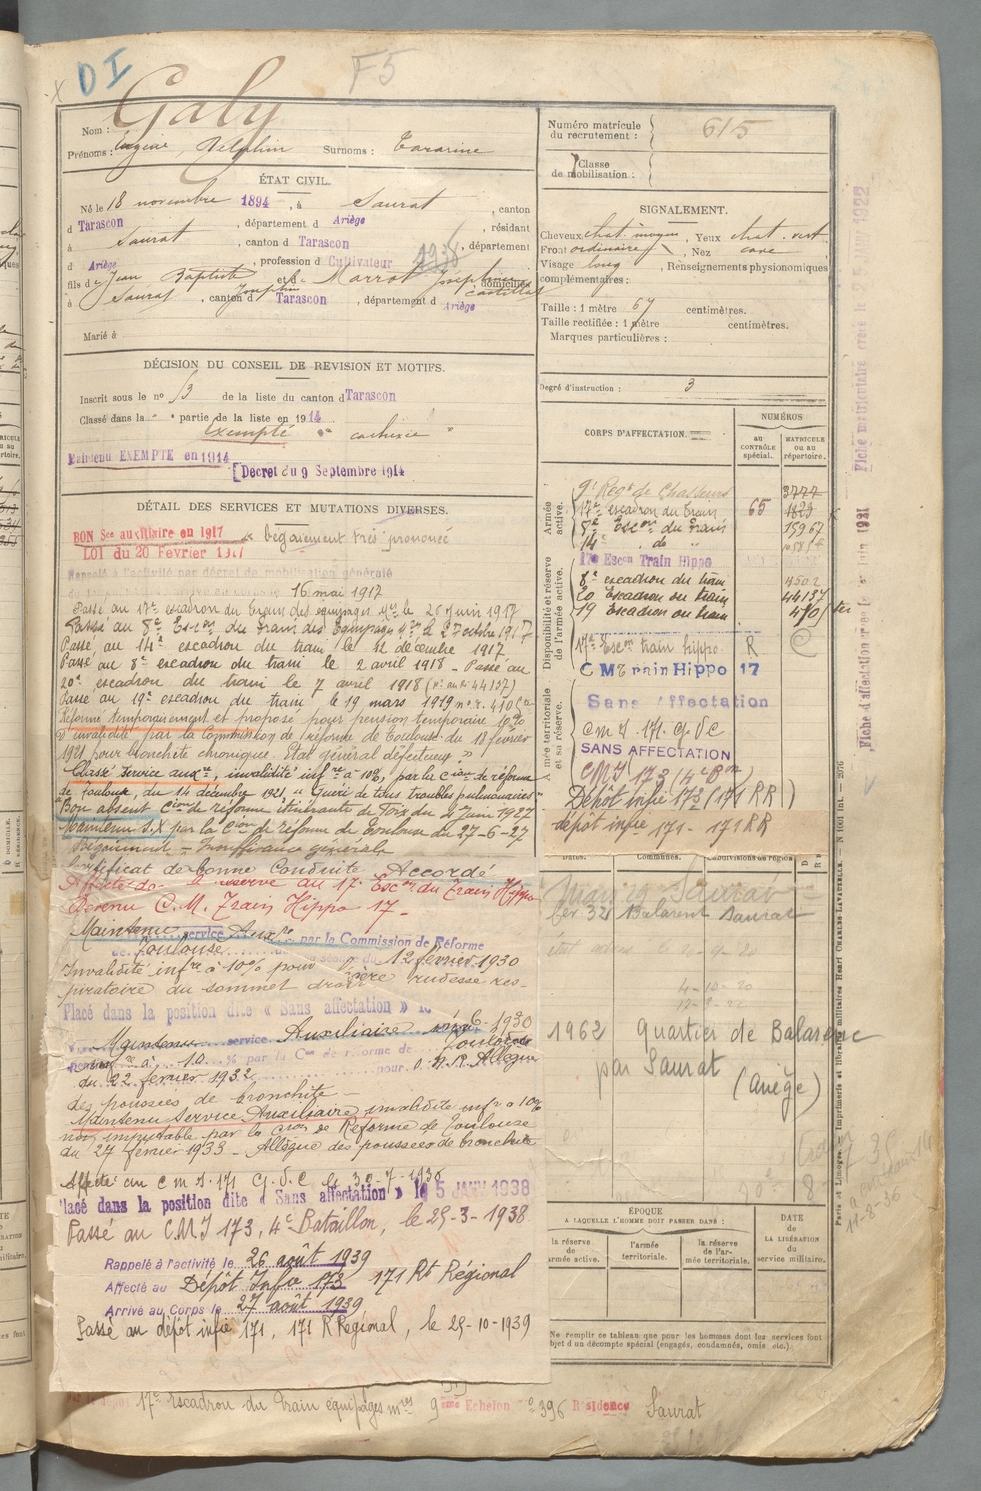 D I
F5
Nom : Galy
Prénoms : Eugène Delphin Surnoms : Tararine
ÉTAT CIVIL.
Né le 18 novembre 1894, à Saurat, canton
d Tarascon, département d Ariège, résidant
à Saurat, canton d Tarascon, département
d Ariège, profession d Cultivateur
fils de Jean Baptiste et de Marrot Josephine domiciliés
à Saurat, canton d Tarascon, département d Ariège
Marié à
DÉCISION DU CONSEIL DE REVISION ET MOTIFS.
Inscrit sous le no 13 de la liste du canton d Tarascon
Classé dans la " " partie de la liste en 1914
Exempté cachexie "
Maintenu EXEMPTE en 1914
[Decret du 9 Septembre 1914
DÉTAIL DES SERVICES ET MUTATIONS DIVERSES.
BON Sce auxiliaire en 1917 " bégaiement très prononcé
LOI du 20 Février 1917
Rappelé à l'activité par décret de mobilisation générale
16 mai 1917
Passé au 17e escadron du train des équipages mres le 26 juin 1917
Passé au 8e Escon du train des Equipages mres le 27 octobre 1917
Passé au 14e escadron du train le 12 décembre 1917
Passé au 8e escadron du train le 2 avril 1918 - Passé au
20e escadron du train le 7 avril 1918 (44137)
Passé au 19e escadron du train le 19 mars 1919
Réformé temporairement et proposé pour pension temporaire 10%
d'invalidité par la Commission de réforme de Toulouse du 18 février
1921 pour bronchite chronique. Etat général défectueux."
Classé Service auxre, invalidité infre à 10%, par la Cion de réforme
de Toulouse, du 14 décembre 1921. "Guéri de tous troubles pulmonaires"
"Bon absent" Cion de réforme itinérante de Foix du 2 juin 1927
Maintenu S.X par la Cion de réforme de Toulouse du 27-6-27
Bégaiement - Insuffisance générale
Certificat de bonne Conduite Accordé
Affecté dans la réserve au 17e Escon du Train Hippo
Devenu C.M. Train Hippo 17 -
Maintenu service Auxre par la Commission de Réforme
de Toulouse 12 février 1930
Invalidité infre à 10% pour légère rudesse res-
piratoire du sommet droit
Placé dans la position dite « Sans affectation » 6-1930
Maintenu service Auxiliaire
à 10 % par la Con de réforme de Toulouse
du 22 février 1932 pour O.N.R. Allègue
des poussées de bronchite -
Maintenu Service Auxiliaire invalidité infre à 10%
non imputable par la Cion de Réforme de Toulouse
du 27 février 1933 - Allègue des poussées de bronchite
Affecté au C M I 171 G.V.C le 30-7-1936
Placé dans la position dite « Sans affectation » le 5 JANV 1938
Passé au C.M.I 173, 4e Bataillon, le 25-3-1938
Rappelé à l'activité le 26 août 1939
Affecté au Dépôt Infie 173 171 Rt Régional
Arrivé au Corps le 27 août 1939
Passé au dépôt infie 171, 171 R Régional, le 25-10-1939
17e Escadron du Train équipages mres 9eme Echelon 2396 Résidence Saurat
Numéro matricule du recrutement : 615
Classe de mobilisation :
SIGNALEMENT.
Cheveux chat. moyen, Yeux chat. vert
Front ordinaire, Nez cave
Visage long, Renseignements physionomiques
complémentaires :
Taille : 1 mètre 67 centimètres.
Taille rectifiée : 1 mètre centimètres.
Marques particulières :
Degré d'instruction : 3
CORPS D'AFFECTATION.
NUMÉROS
AU CONTRÔLE spécial.
MATRICULE OU AU répertoire.
Armée active.
9e Regt de Chasseurs 3777
17e escadron du train 65 1823
8e Escon du train 15967
14e do "
Disponibilité et réserve de l'armée active.
17e Escon Train Hippo
8e escadron du train 4502
20 Escadron du train 44137
19 Escadron du train
17e Escon train hippo. R
C M Train Hippo 17
Armée territoriale et sa réserve.
Sans Affectation
C m I 171 G.V.C
SANS AFFECTATION
CMI 173 (4e Bon)
Dépôt infie 173 (171 RR)
dépôt infie 171 - 171 RR
Dates. Communes. Subdivisions de région
Saurat
Balarent Saurat
4-10-20
1962 Quartier de Balarenc
par Saurat
(Ariège)
11-8-36
ÉPOQUE
A LAQUELLE L'HOMME DOIT PASSER DANS :
DATE DE LA LIBÉRATION du service militaire.
la réserve de l'armée active.
l'armée territoriale.
la réserve de l'armée territoriale.
Ne remplir ce tableau que pour les hommes dont les services font
objet d'un décompte spécial (engagés, condamnés, omis etc.).
Fiche matriculaire créée le 25 1922
Fiche d'affectation créée le 1er juin 1921
Paris et Limoges. — Imprimerie et librairie militaires Henri CHARLES-LAVAUZELLE. — N° 1001 int. — 2076